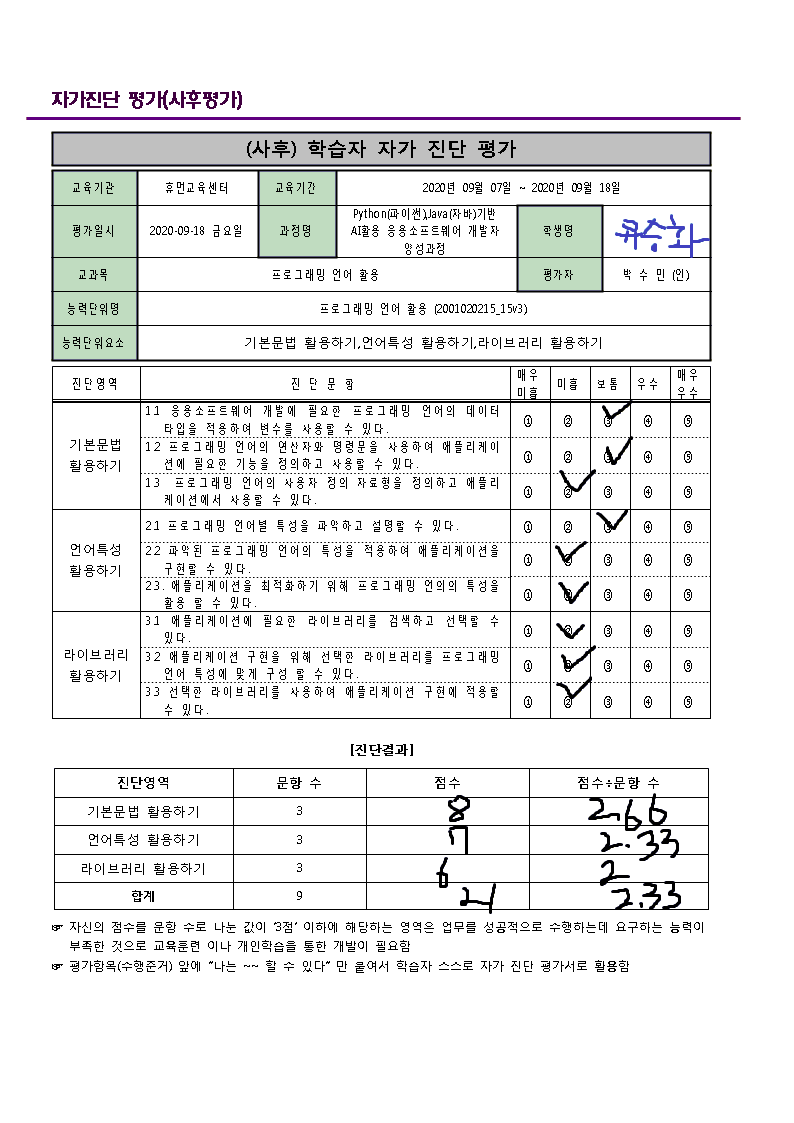 자가진단 평가(사후평가)
(사후) 학습자 자가 진단 평가
교육기관 휴먼교육센터 교육기간 2020년 09월 07일 ~ 2020년 09월 18일
평가일시 2020-09-18 금요일 과정명 Python(파이썬),Java(자바)기반
AI활용 응용소프트웨어 개발자
양성과정
학생명
교과목 프로그래밍 언어 활용 평가자 박 수 민 (인)
능력단위명 프로그래밍 언어 활용 (2001020215_15v3)
능력단위요소 기본문법 활용하기,언어특성 활용하기,라이브러리 활용하기
진단영역 진 단 문 항 매우 미흡 미흡 보통 우수 매우 우수
기본문법 활용하기
11 응용소프트웨어 개발에 필요한 프로그래밍 언어의 데이터
타입을 적용하여 변수를 사용할 수 있다. ① ② ③ ④ ⑤
12 프로그래밍 언어의 연산자와 명령문을 사용하여 애플리케이
션에 필요한 기능을 정의하고 사용할 수 있다. ① ② ③ ④ ⑤
13 프로그래밍 언어의 사용자 정의 자료형을 정의하고 애플리
케이션에서 사용할 수 있다. ① ② ③ ④ ⑤
언어특성 활용하기
21 프로그래밍 언어별 특성을 파악하고 설명할 수 있다. ① ② ③ ④ ⑤
22 파악된 프로그래밍 언어의 특성을 적용하여 애플리케이션을
구현할 수 있다. ① ② ③ ④ ⑤
23. 애플리케이션을 최적화하기 위해 프로그래밍 언의의 특성을
활용 할 수 있다. ① ② ③ ④ ⑤
라이브러리 활용하기
31 애플리케이션에 필요한 라이브러리를 검색하고 선택할 수
있다. ① ② ③ ④ ⑤
32 애플리케이션 구현을 위해 선택한 라이브러리를 프로그래밍
언어 특성에 맞게 구성 할 수 있다. ① ② ③ ④ ⑤
33 선택한 라이브러리를 사용하여 애플리케이션 구현에 적용할
수 있다. ① ② ③ ④ ⑤
[진단결과]
진단영역 문항 수 점수 점수÷문항 수
기본문법 활용하기 3 8 2.66
언어특성 활용하기 3 7 2.33
라이브러리 활용하기 3 6 2
합계 9 21 2.33
☞ 자신의 점수를 문항 수로 나눈 값이 '3점' 이하에 해당하는 영역은 업무를 성공적으로 수행하는데 요구하는 능력이
부족한 것으로 교육훈련 이나 개인학습을 통한 개발이 필요함
☞ 평가항목(수행준거) 앞에 "나는 ~~ 할 수 있다" 만 붙여서 학습자 스스로 자가 진단 평가서로 활용함